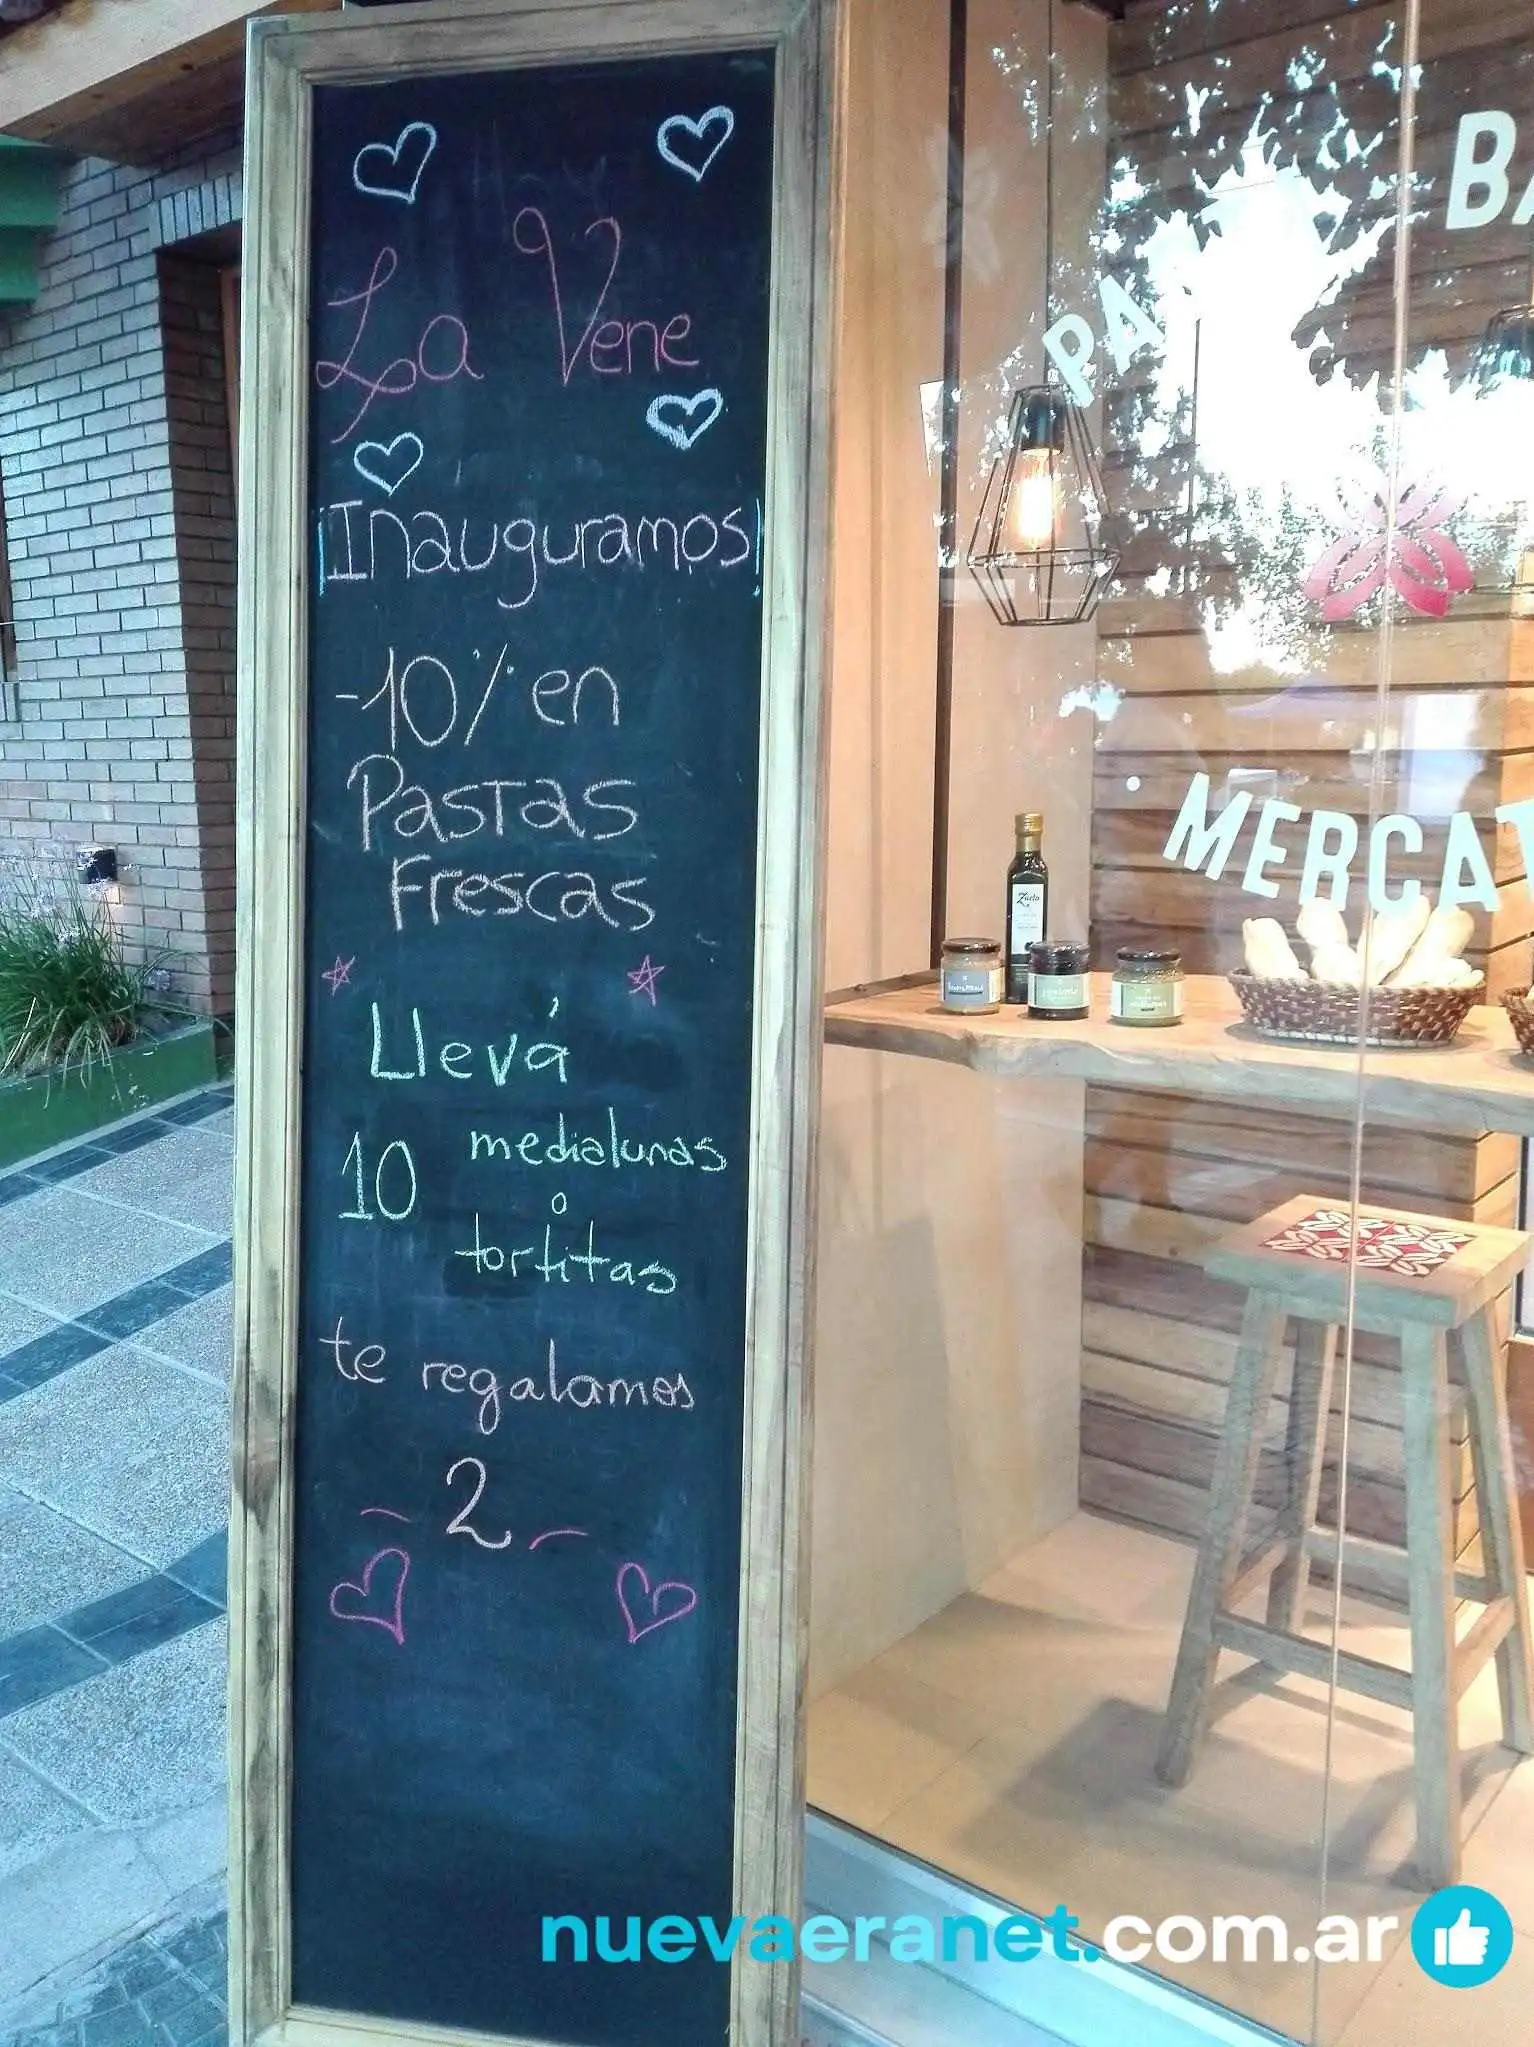 La Vene
¡Inauguramos!
-10% en
Pastas
Frescas
Llevá
10 medialunas
o
tortitas
te regalamos
- 2 -
BA
PA
MERCAT
Zuelo
nuevaeranet.com.ar